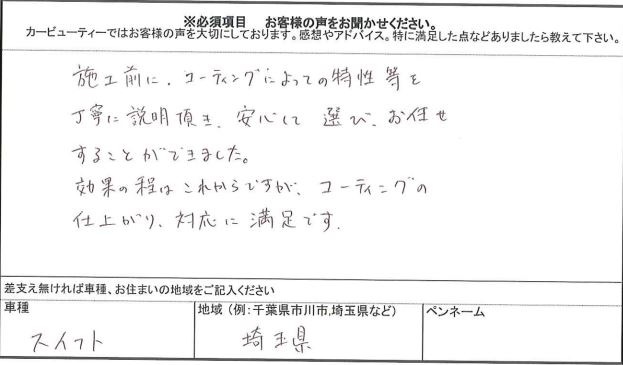 ※必須項目 お客様の声をお聞かせください。
カービューティーではお客様の声を大切にしております。感想やアドバイス。特に満足した点などありましたら教えて下さい。
施工前に、コーティングによっての特性等を
丁寧に説明頂き、安心して 選び、お任せ
することができました。
効果の程はこれからですが、コーティングの
仕上がり、対応に満足です。
差支え無ければ車種、お住まいの地域をご記入ください
車種 地域 (例:千葉県市川市,埼玉県など) ペンネーム
スイフト 埼玉県